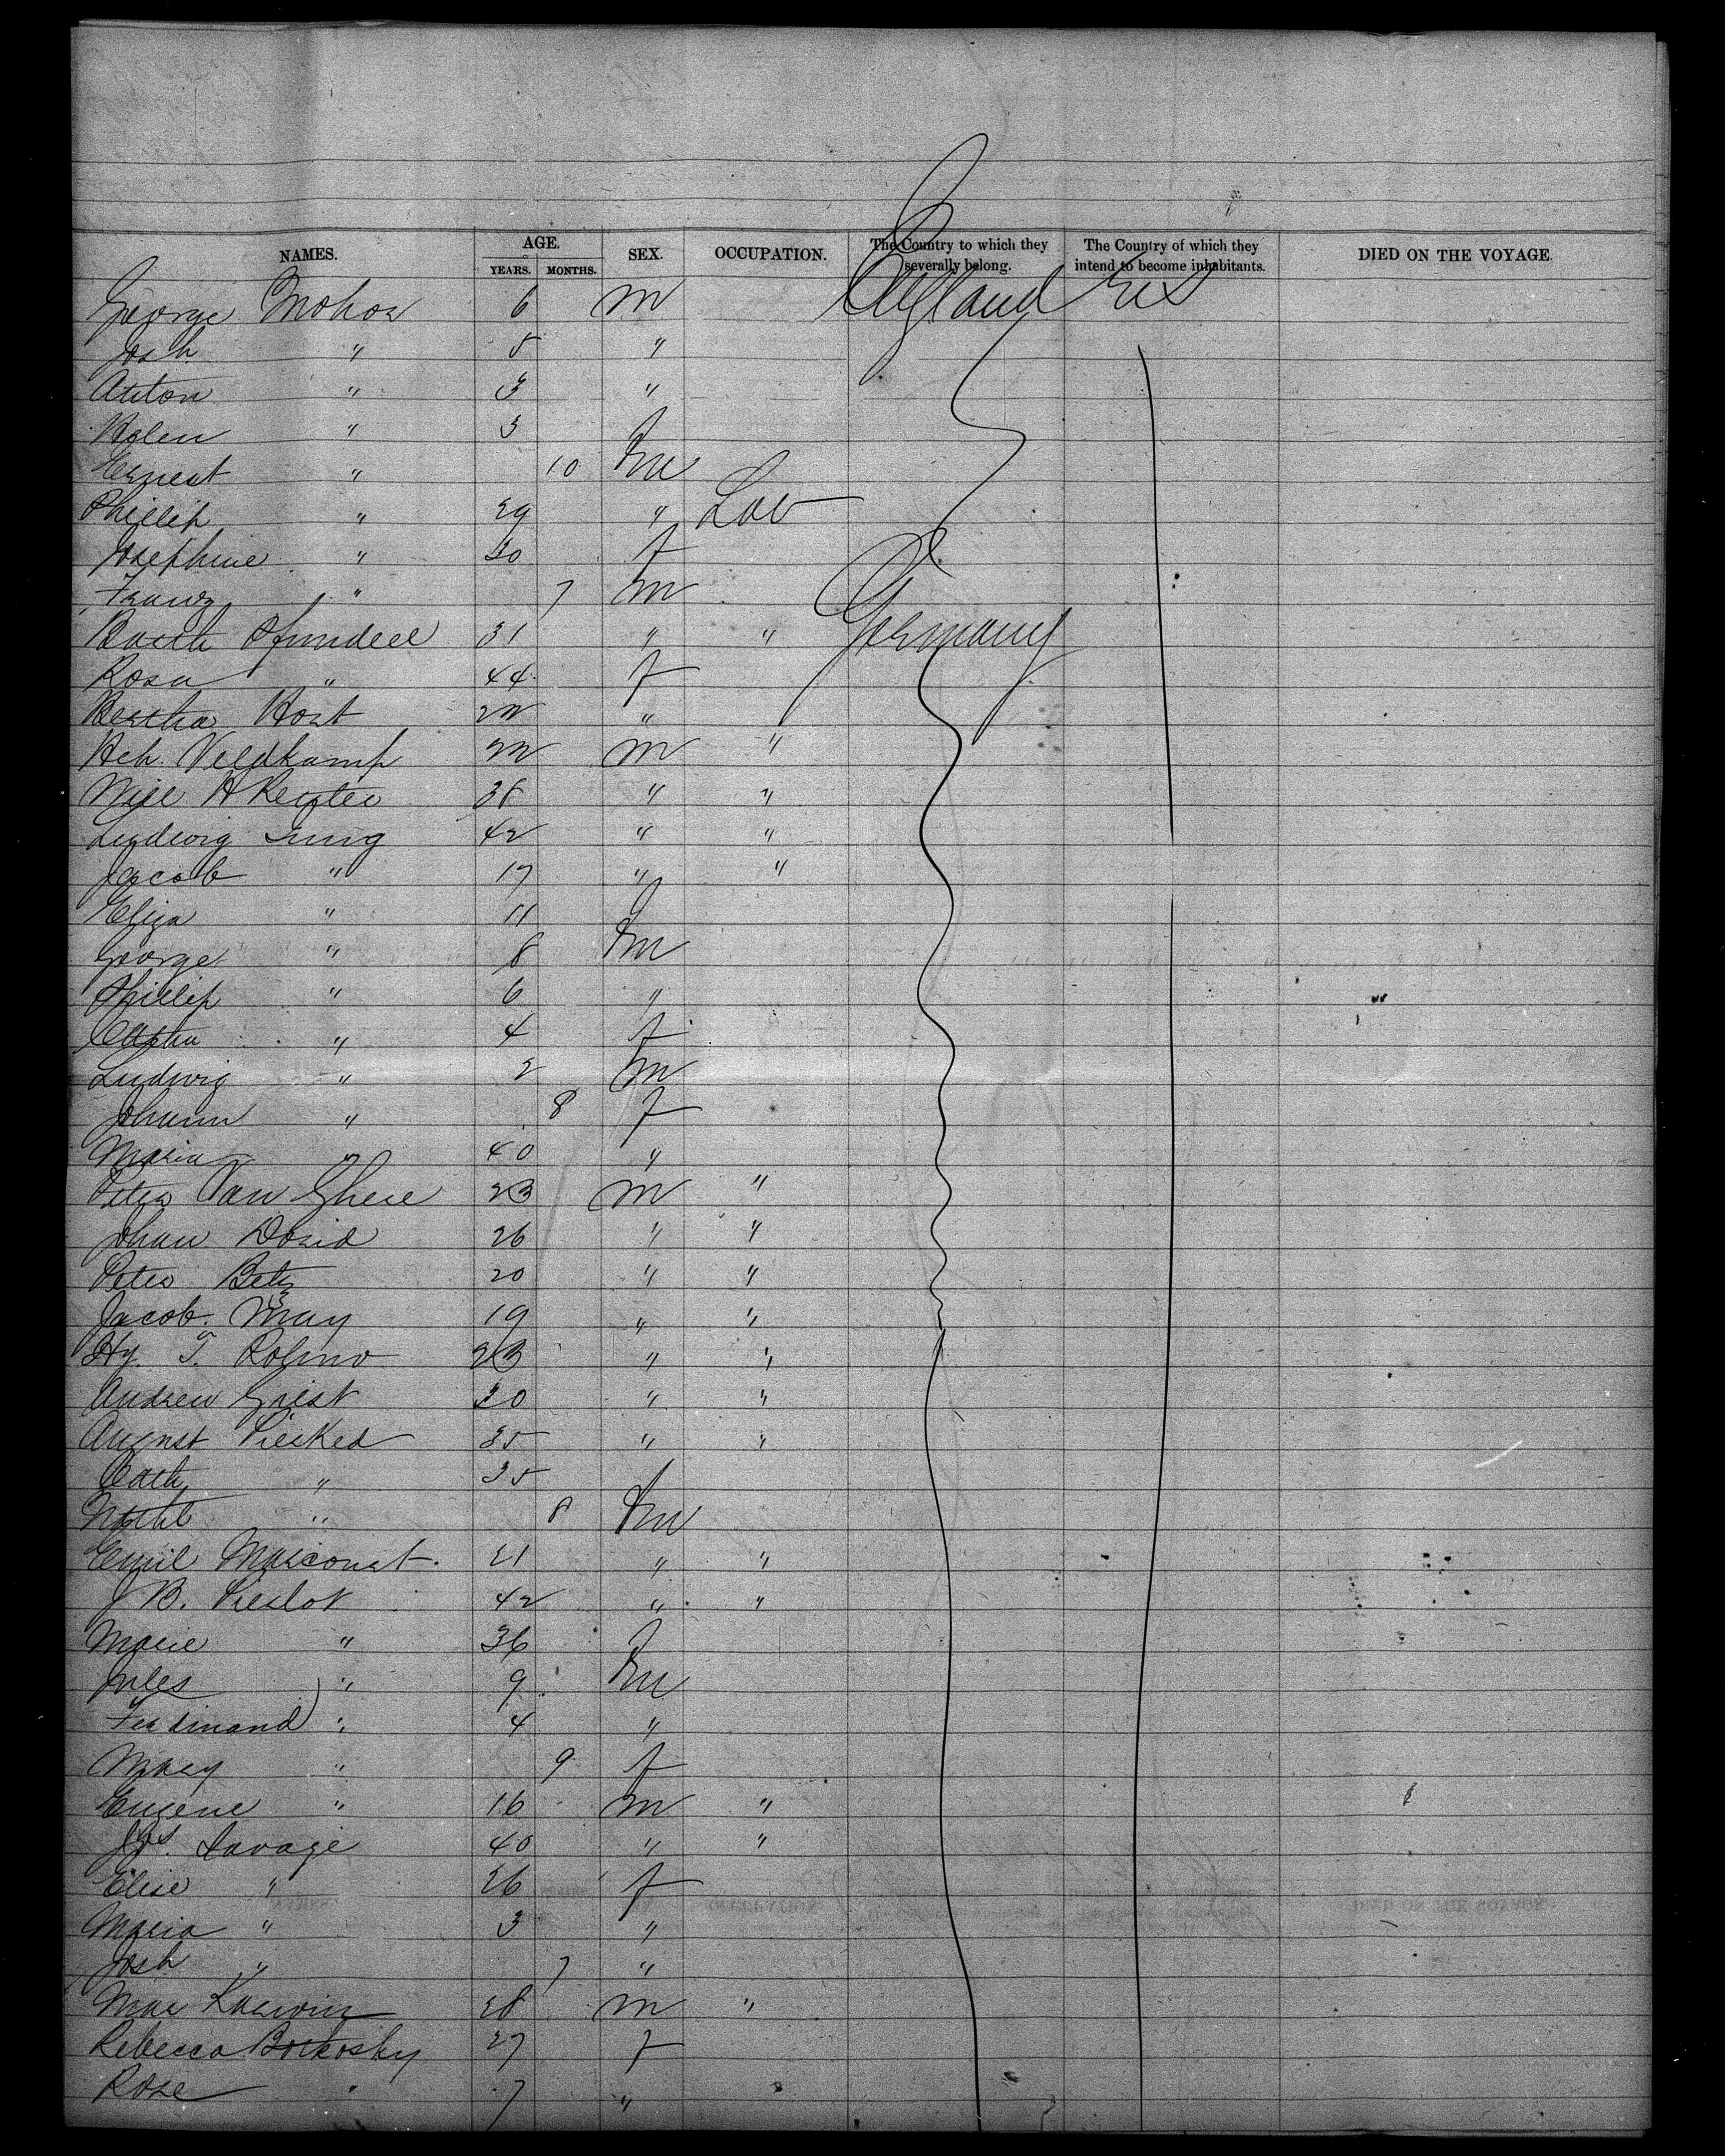 NAMES. AGE. YEARS. MONTHS. SEX. OCCUPATION. The Country to which they severally belong. The Country of which they intend to become inhabitants. DIED ON THE VOYAGE.
George 6 m England U S
Josh " 5 "
Anton " 3 "
Helen " 3 f
Ernest " 10 m
Phillip " 29 " Lab
Josephine " 30 f
Franz " 7 m
Barth 31 " " Germany
Rosa " 44 f
Bertha Hort 22 "
Hch. Veldkamp 22 m "
38 " "
Ludwig Jung 42 " "
Jacob " 17 " "
Eliza " 11 f
George " 8 m
Phillip " 6 "
" 4 f
Ludwig " 2 m
Johann " 8 f
Maria " 40 "
Peter Van Ghele 23 m "
Johan David 26 " "
Peter Betz 20 " "
Jacob May 19 " "
Hy. T. 23 " "
Andrew Griest 30 " "
August 35 " "
Cath " 35 f
" 8 m
Emil 21 " "
J B. Pierlot 42 " "
Marie " 36 f
Jules " 9 m
Ferdinand " 4 "
Mary " 9 f
Eugene " 16 m "
Jos. Savage 40 " "
Elise " 26 f
Maria " 3 "
Josh " 7 "
Max 28 m "
Rebecca 27 f
Rose " 7 "